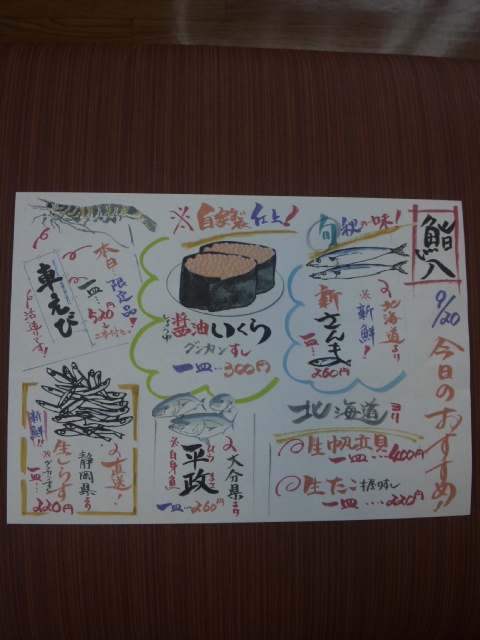 鮨八
9/20
今日のおすすめ!
旬 秋の味!
北海道より
※新鮮!
新さんま
一皿…260円
※自家製仕上!
醤油いくら
しょうゆ
グンカンすし
一皿…300円
本日限定品!
一皿…520円
車えび
活造りです!
北海道ヨリ
生帆立貝
一皿…400円
生たこ 握りずし
一皿…220円
大分県より
平政
※白身魚
一皿…260円
直送!
静岡県より
生しらす
※グンカンすし
一皿…220円
新鮮!!